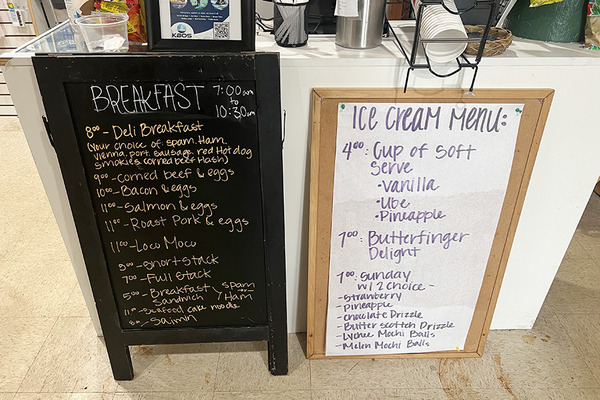 KBOS
BREAKFAST 7:00am
to
10:30am
8⁰⁰ - Deli Breakfast
(your choice of: spam, Ham,
vienna, port. sausage, red Hotdog
smokies, corned beef Hash)
9⁰⁰ - corned beef & eggs
10⁰⁰ - Bacon & eggs
11⁰⁰ - Salmon & eggs
11⁰⁰ - Roast Pork & eggs
11⁰⁰ - Loco Moco
5⁰⁰ - short stack
7⁰⁰ - Full stack
5⁰⁰ - Breakfast spam
Sandwich Ham
11⁰⁰ - Seafood cake noodle
8⁰⁰ - Saimin
ICE CREAM MENU:
4⁰⁰: Cup of Soft
Serve
• Vanilla
• Ube
• Pineapple
7⁰⁰: Butterfinger
Delight
7⁰⁰: Sunday
w/ 2 choice -
- strawberry
- Pineapple
- chocolate Drizzle
- Butter scotch Drizzle
- Lychee Mochi Balls
- Melon Mochi Balls